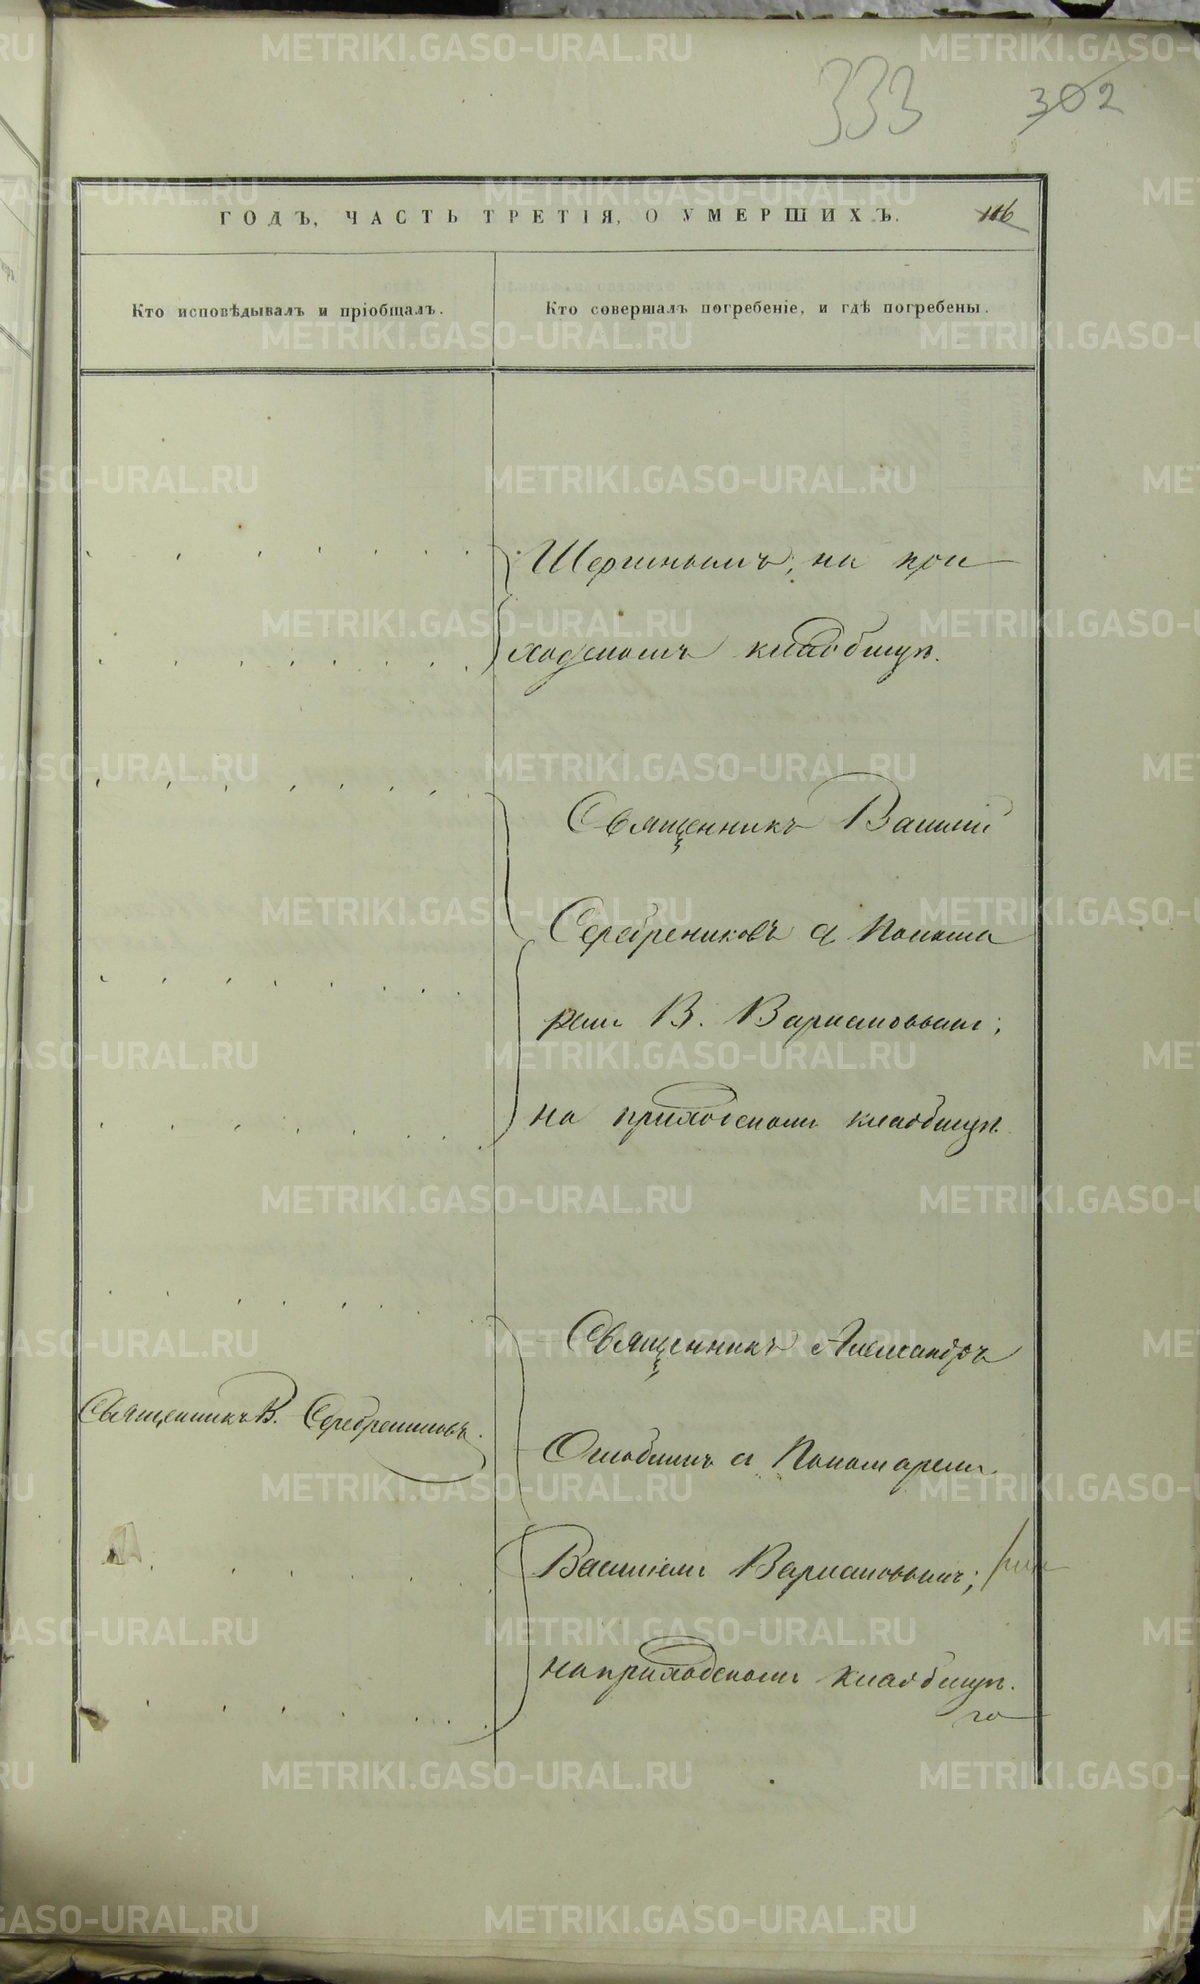 333 302
ГОДЪ, ЧАСТЬ ТРЕТІЯ, О УМЕРШИХЪ. 116
Кто исповѣдывалъ и пріобщалъ.
Кто совершалъ погребеніе, и гдѣ погребены.
Шергинымъ, на при
ходскомъ кладбищѣ.
Священникъ Василій
Серебрениковъ съ Понома
ремъ В. Варлаковымъ;
на приходскомъ кладбищѣ.
Священникъ Александръ
Священникъ В. Серебрениковъ.
Оглоблинъ съ Пономаремъ
Василіемъ Варлаковымъ;
на приходскомъ кладбищѣ.
METRIKI.GASO-URAL.RU